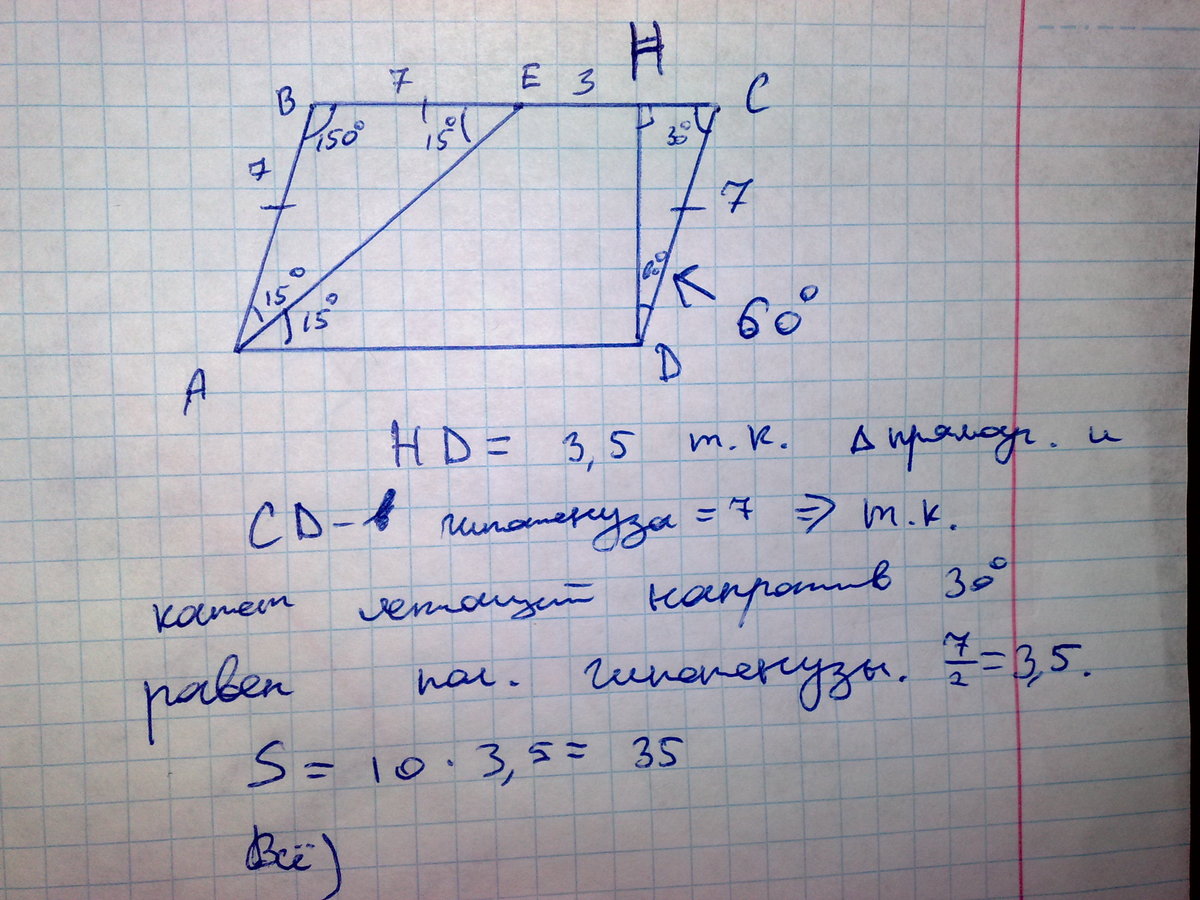 H
B 7 E 3 C
150° 15° 30°
7 7
15° 60°
15° 60°
A D
HD = 3,5 т.к. Δ прямоуг. и
CD - гипотенуза = 7 ⇒ т.к.
катет лежащий напротив 30°
равен пол. гипотенузы. 7/2 = 3,5.
S = 10 · 3,5 = 35
Всё)